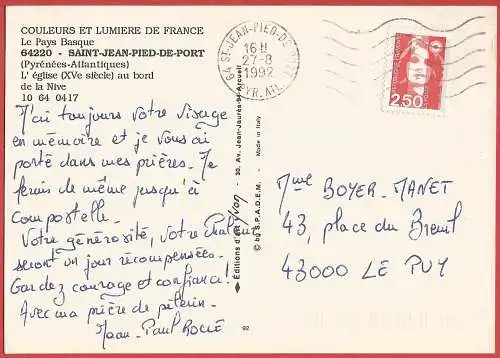 COULEURS ET LUMIERE DE FRANCE
Le Pays Basque
64220 - SAINT-JEAN-PIED-DE-PORT
(Pyrénées-Atlantiques)
L' église (XVe siècle) au bord
de la Nive
10 64 0417
J'ai toujours votre visage
en mémoire et je vous ai
porté dans mes prières. Je
ferais de même jusqu'à
compostelle.
Votre générosité, votre chaleur
seront un jour récompensées.
Gardez courage et confiance!
Avec ma prière de pèlerin.
Jean-Paul
92
Editions d'art yvon - 30, Av. Jean-Jaurès-94-Arcueil
© by S.P.A.D.E.M. - Made in Italy
64 ST-JEAN-PIED-DE-PORT
16 H
27-8
1992
PYR. ATL.
2,50
Mme BOYER-MANET
43, place du Breuil
43000 LE PUY